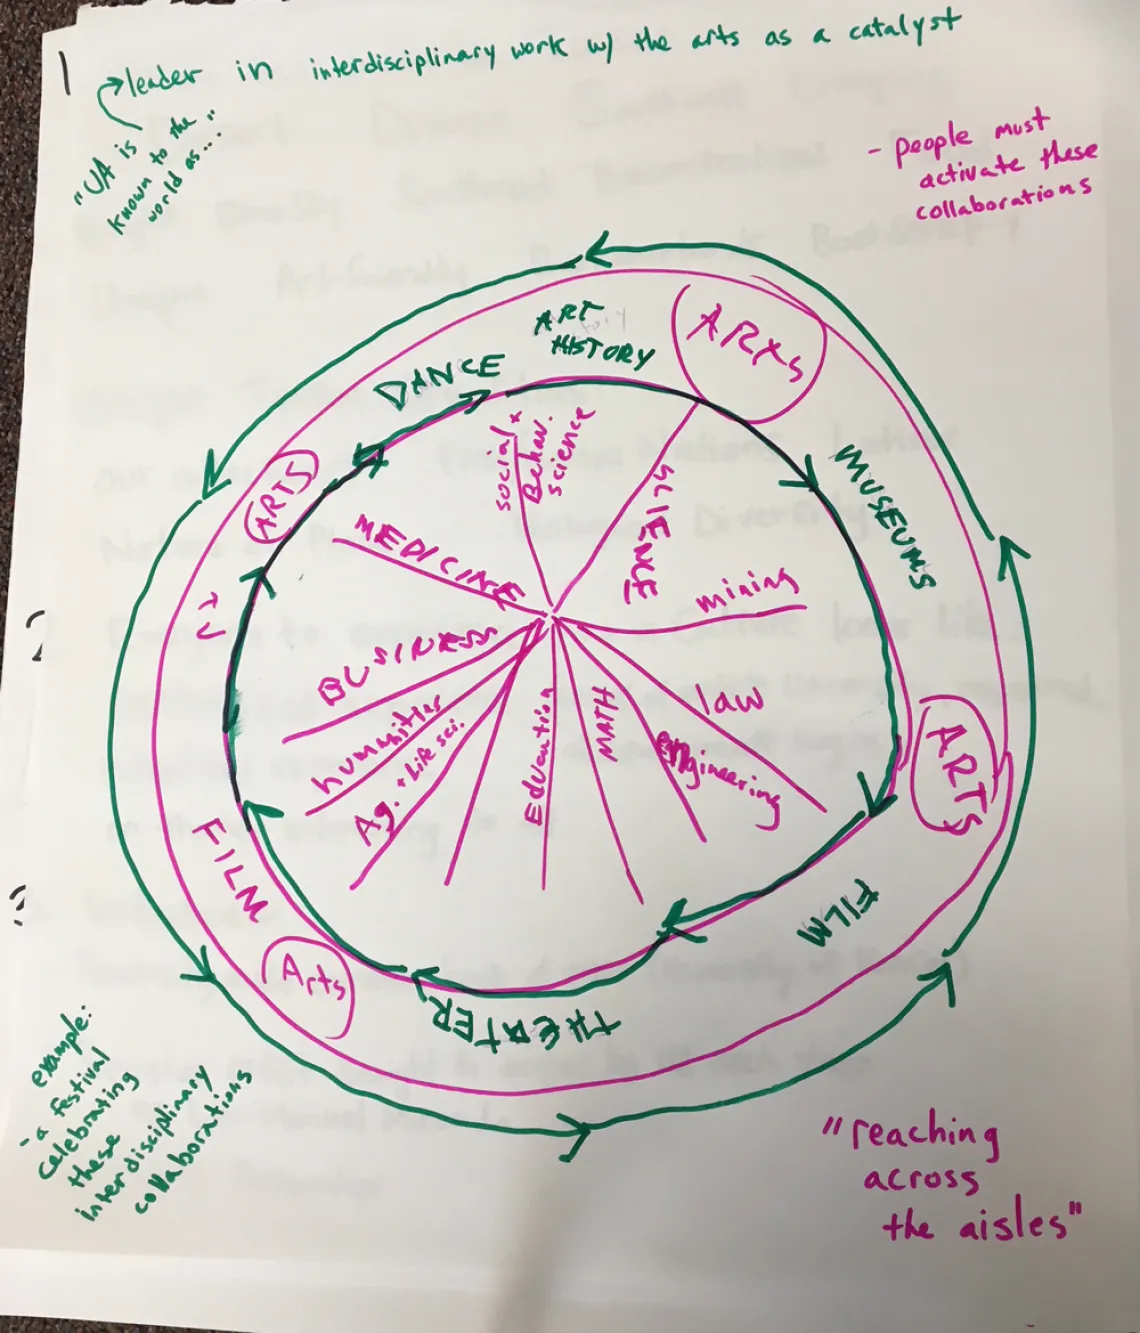 1
leader in interdisciplinary work w/ the arts as a catalyst
"UA is
known to the"
world as...
- people must
activate these
collaborations
ARTS
ART
HISTORY
DANCE
MUSEUMS
ARTS
social +
Behav.
science
SCIENCE
MEDICINE
mining
TV
BUSINESS
law
humanities
Ag. + Life sci.
Education
MATH
engineering
ARTS
FILM
FILM
Arts
THEATER
2
3
example:
- a festival
celebrating
these
interdisciplinary
collaborations
"reaching
across
the aisles"